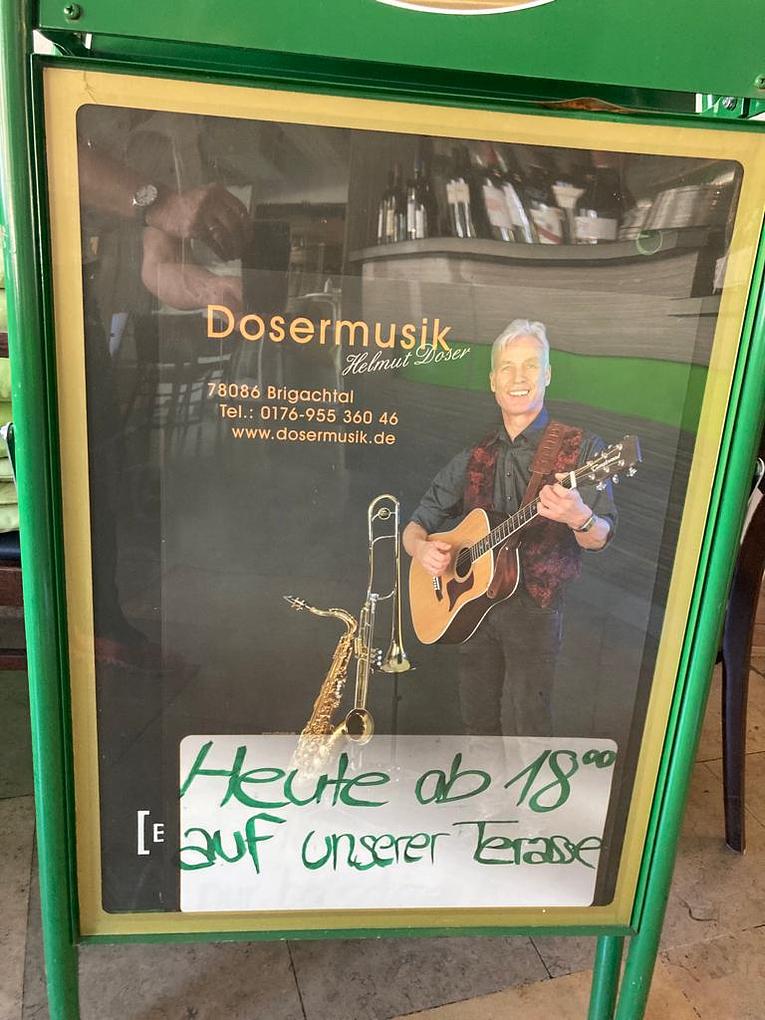 Dosermusik
Helmut Doser
78086 Brigachtal
Tel.: 0176-955 360 46
www.dosermusik.de
Heute ab 18⁰⁰
[E
auf unserer Terasse